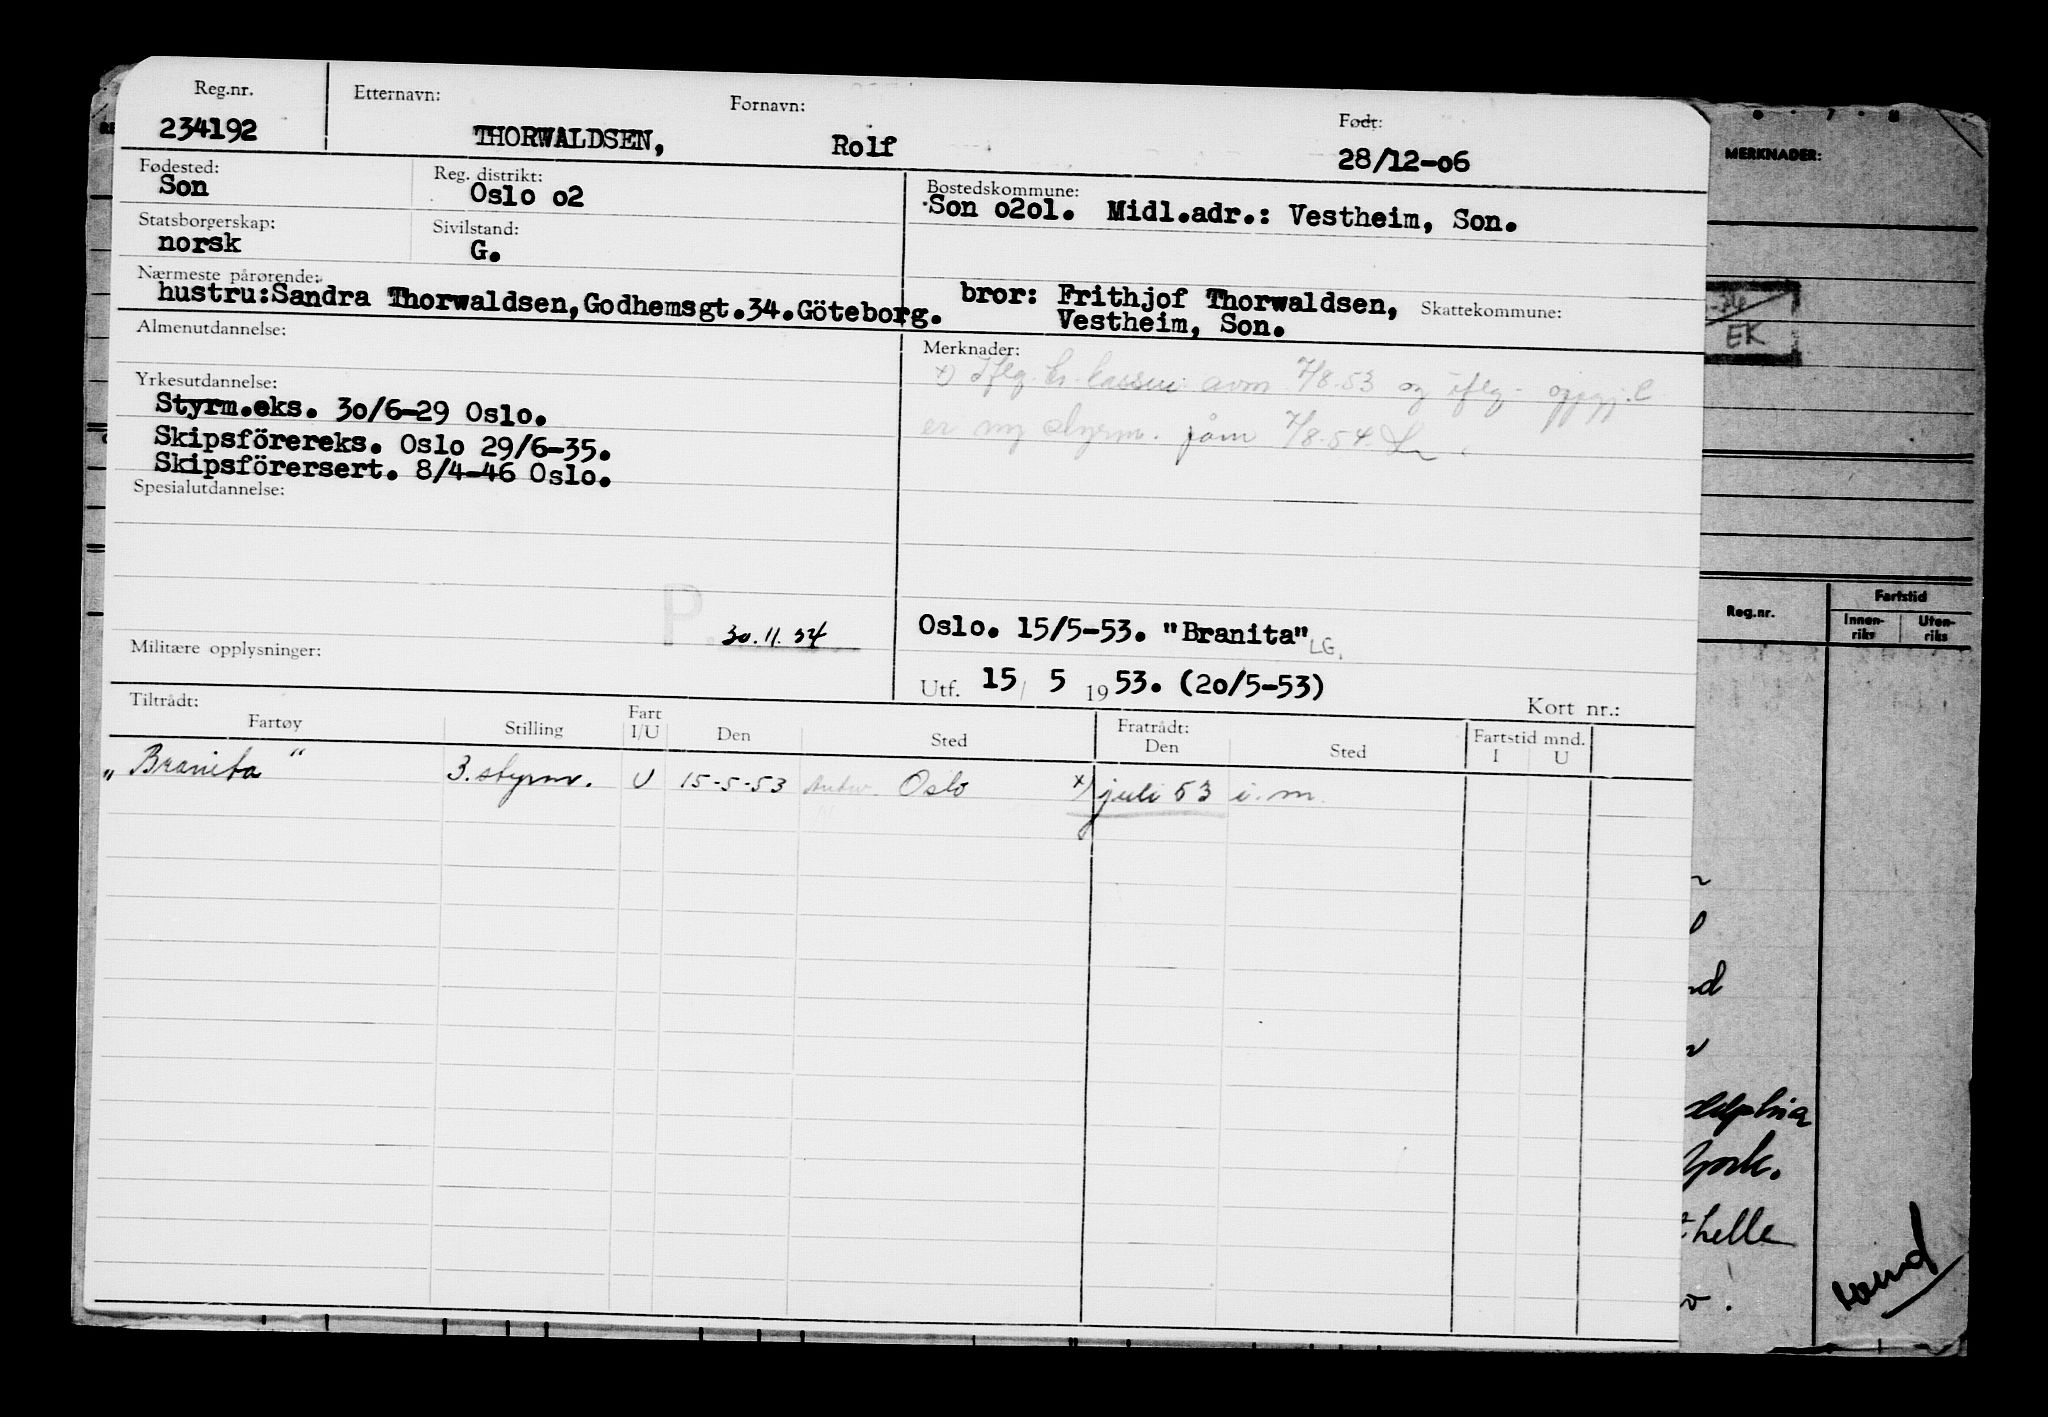 Reg.nr. Etternavn: Fornavn: Født:
234192 THORWALDSEN, Rolf 28/12-06
Fødested: Reg. distrikt: Bostedskommune:
Son Oslo o2 Son o2ol. Midl.adr.: Vestheim, Son.
Statsborgerskap: Sivilstand:
norsk G.
Nærmeste pårørende:
hustru:Sandra Thorwaldsen,Godhemsgt.34.Göteborg. bror: Frithjof Thorwaldsen, Skattekommune:
Vestheim, Son.
Almenutdannelse: Merknader:
x) Iflg. 7/8.53 og iflg.
Yrkesutdannelse:
Styrm.eks. 3o/6-29 Oslo.
er ny styrm. 7/8.54.
Skipsförereks. Oslo 29/6-35.
Skipsförersert. 8/4-46 Oslo.
Spesialutdannelse:
P. 30.11.54 Oslo. 15/5-53. "Branita" LG.
Militære opplysninger:
Utf. 15/ 5 1953. (2o/5-53) Kort nr.:
Tiltrådt: Fratrådt: Fartstid mnd.
Fartøy Stilling Fart I/U Den Sted Den Sted I U
„Branita" 3. styrm. U 15-5-53 Oslo x) juli 53 i. m.
MERKNADER:
EK
Reg.nr. Fartstid
Innen-riks Uten-riks